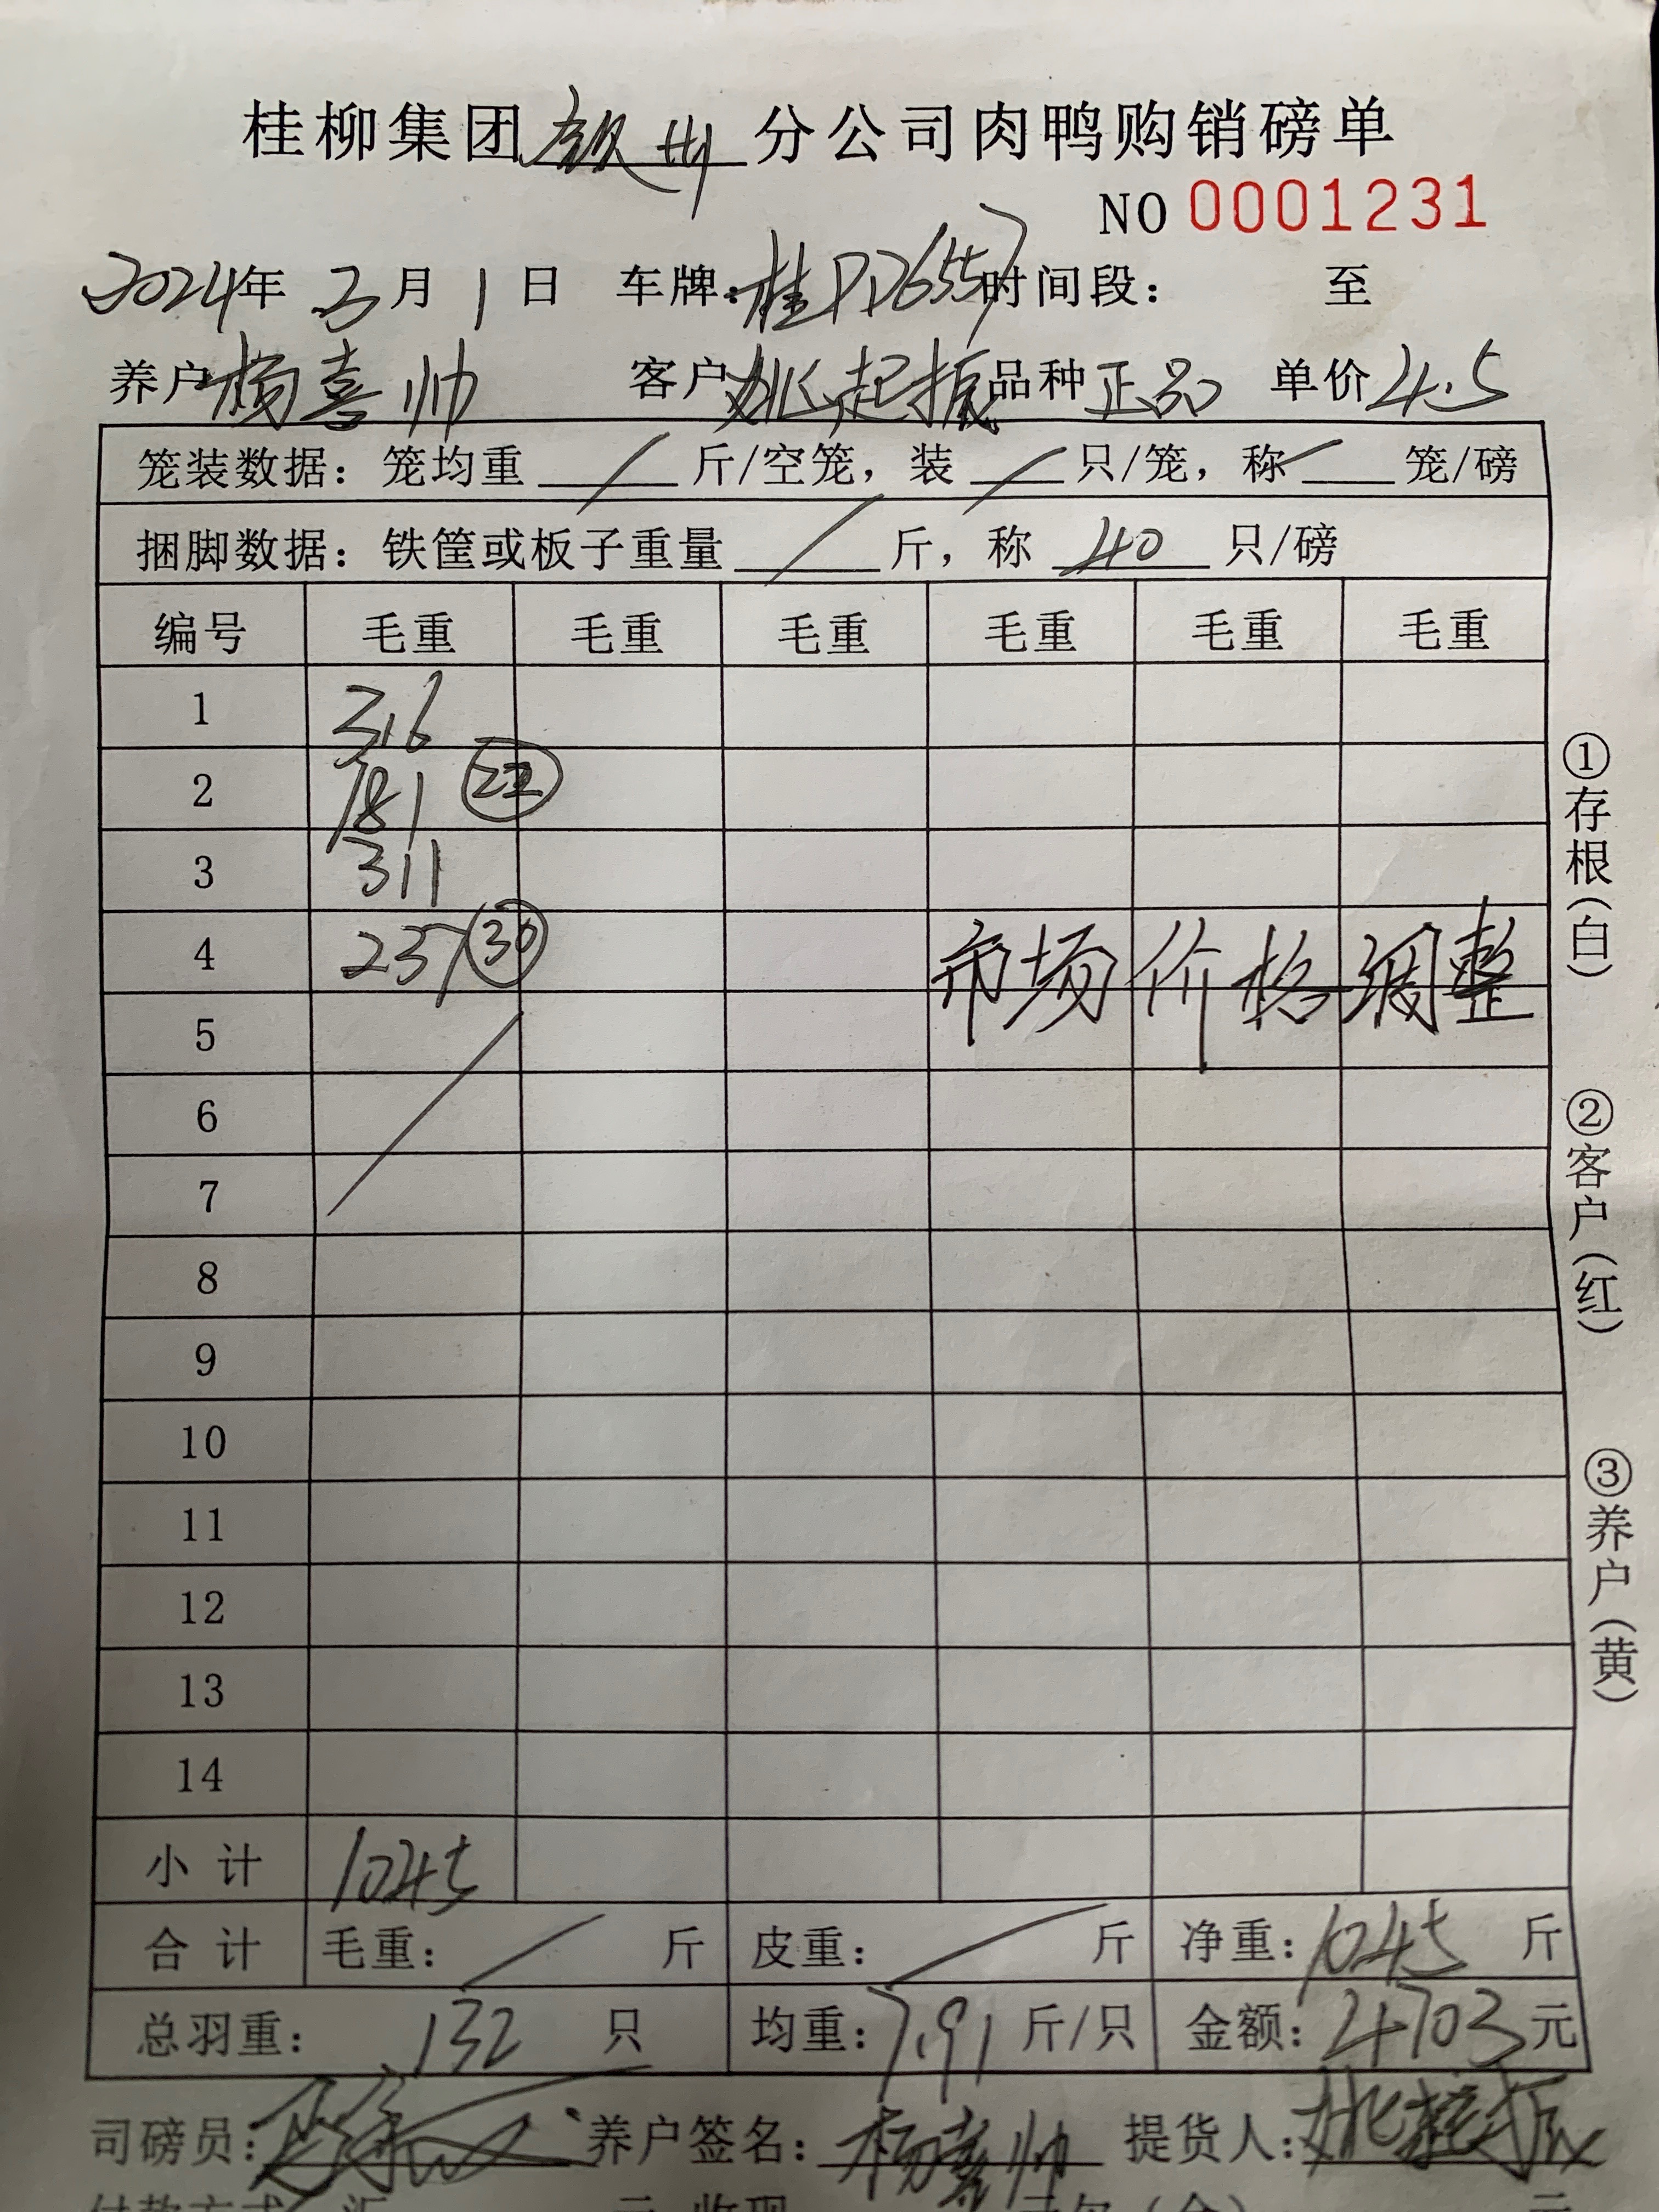 桂柳集团钦州分公司肉鸭购销磅单
NO 0001231
2024年3月1日 车牌:桂PD6557时间段: 至
养户杨喜帅 客户姚起振品种正品 单价4.5
笼装数据: 笼均重 / 斤/空笼, 装 / 只/笼, 称 / 笼/磅
捆脚数据: 铁筐或板子重量 / 斤, 称 40 只/磅
编号 毛重 毛重 毛重 毛重 毛重 毛重
1 316
2 181 22
3 311
4 237 30
市场价格调整
5
6
7
8
9
10
11
12
13
14
小计 1045
合计 毛重: / 斤 皮重: / 斤 净重: 1045 斤
总羽重: 132 只 均重: 7.91 斤/只 金额: 4703 元
司磅员: 养户签名: 杨喜帅 提货人: 姚起振
①存根(白)
②客户(红)
③养户(黄)